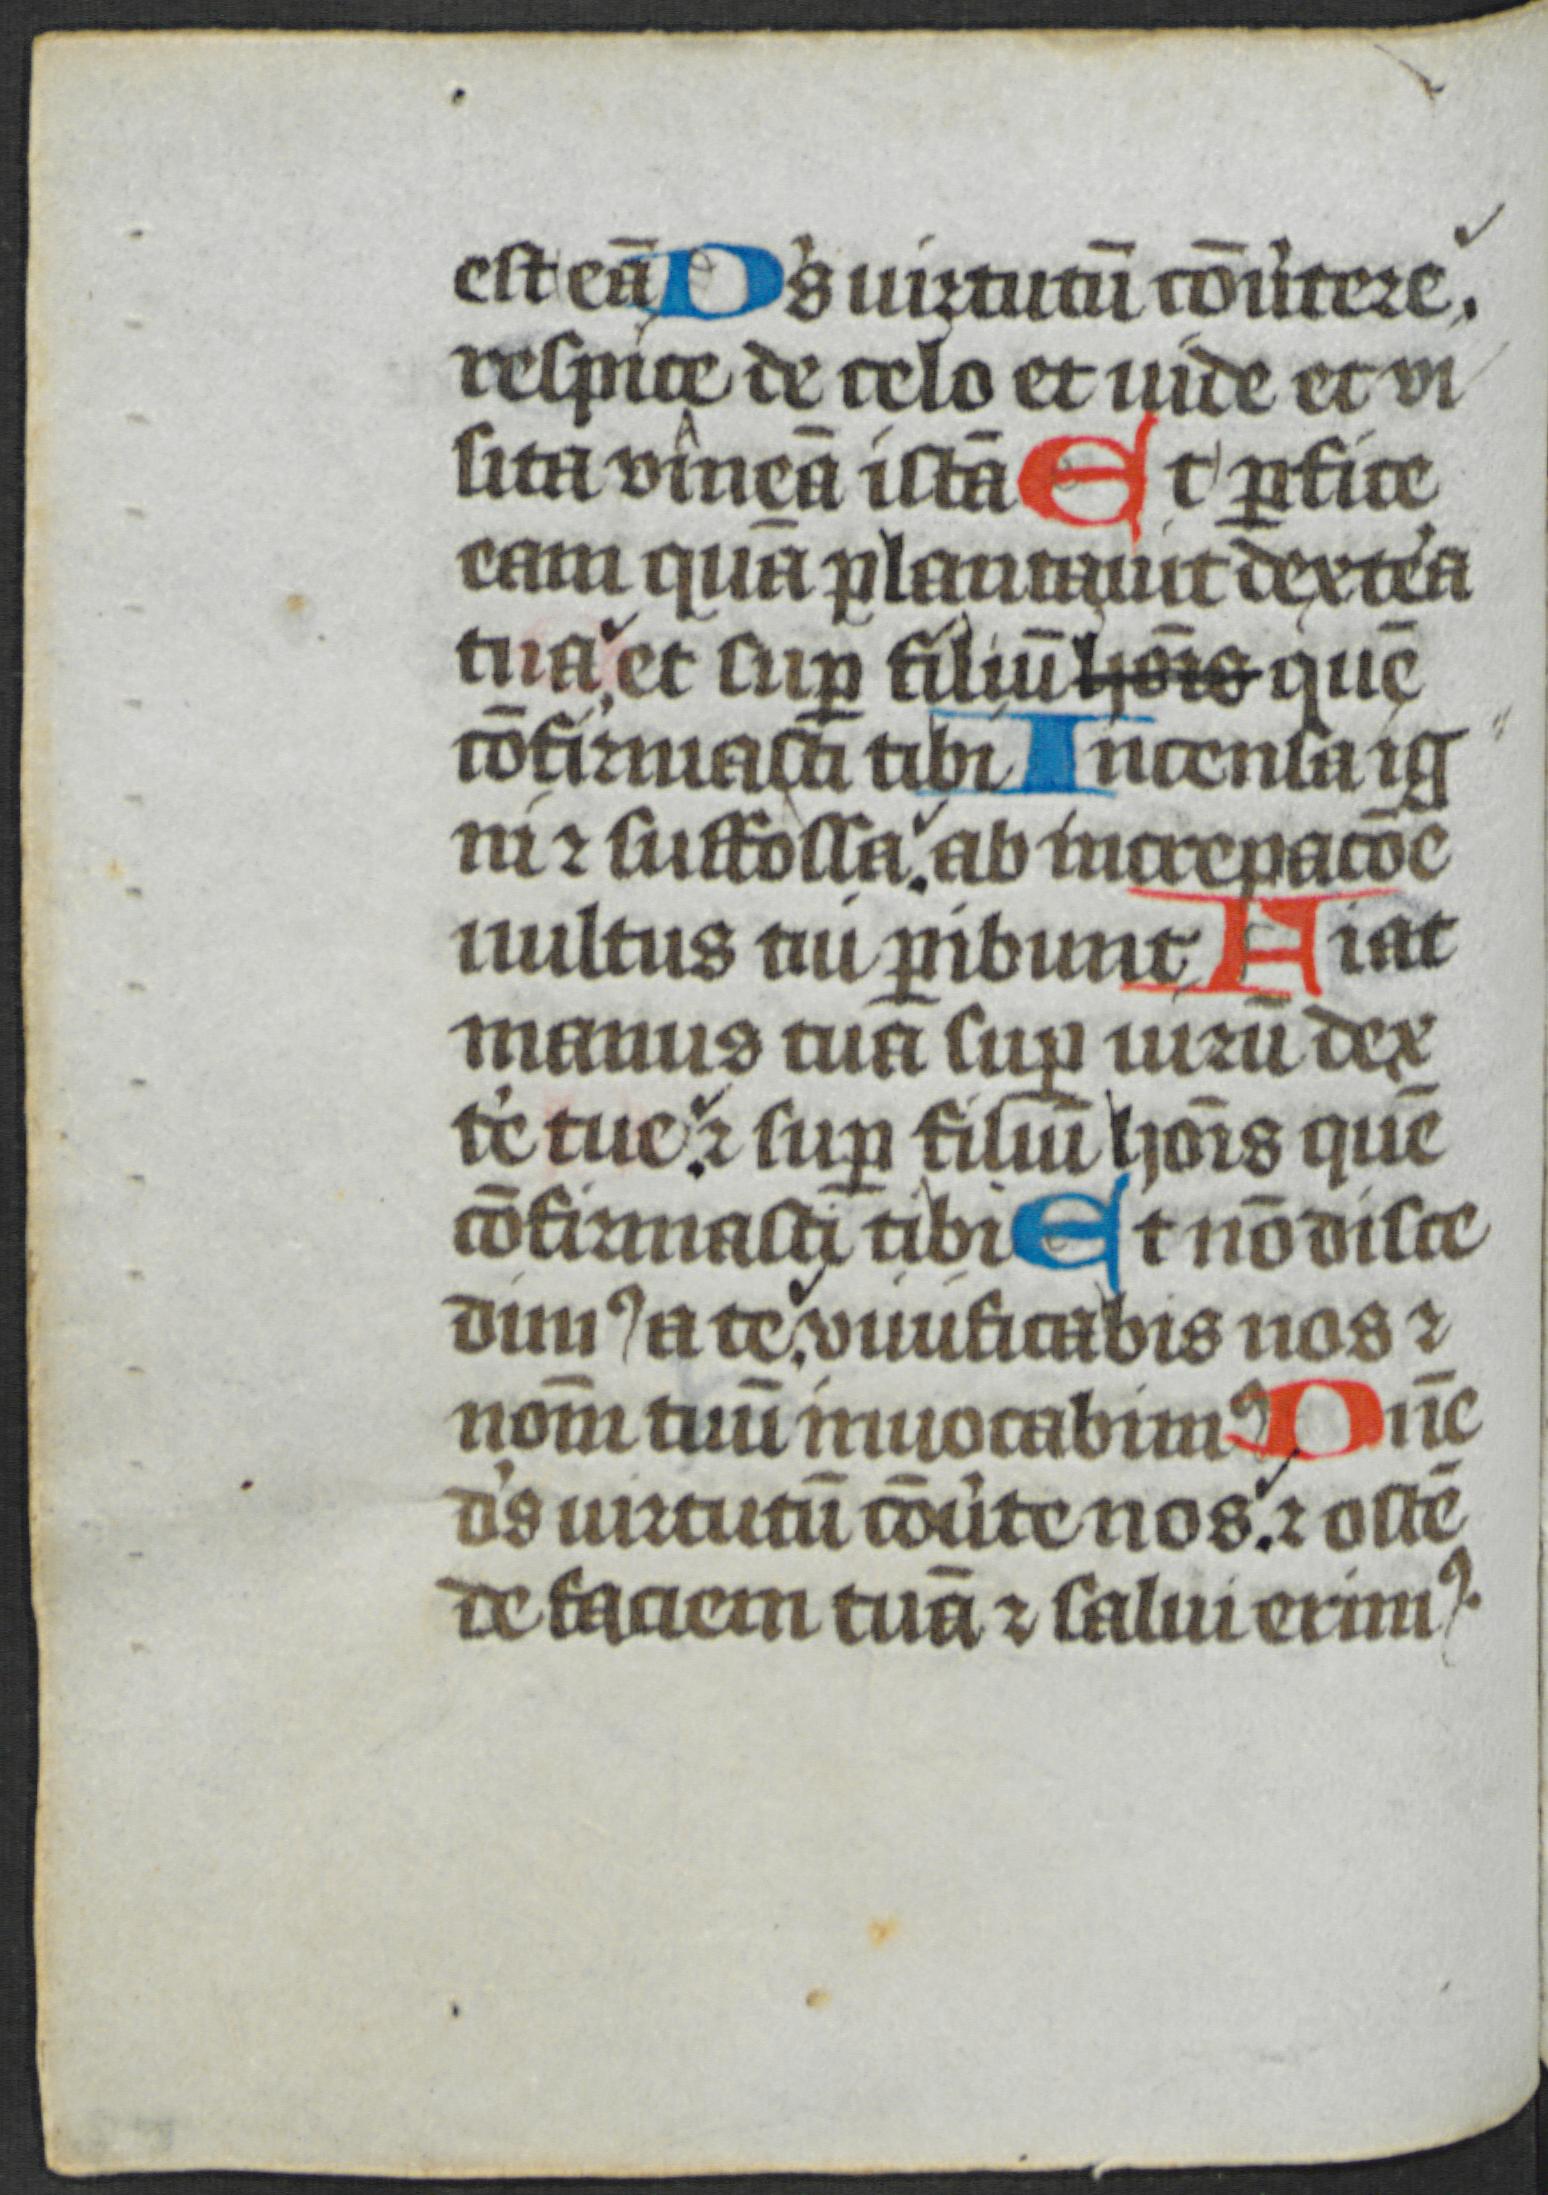 est eā D's uirtutū cōu'tere.
respice de celo et uide et vi
sita vineā istā Et ꝑfice
eam quā plantauit dext'a
tua. et suꝑ filiū hōis quē
cōfirmasti tibi Incensa ig
ni ⁊ suffossa. ab increpacōe
uultus tui ꝑibunt Fiat
manus tua suꝑ uirū dex
t'e tue. ⁊ suꝑ filiū hōis quē
cōfirmasti tibi Et nō disce
dimꝰ a te. viuificabis nos ⁊
nom̄ tuū inuocabimꝰ Dn̄e
d's uirtutū cōu'te nos. ⁊ ostē
de faciem tuā ⁊ salui erimꝰ.